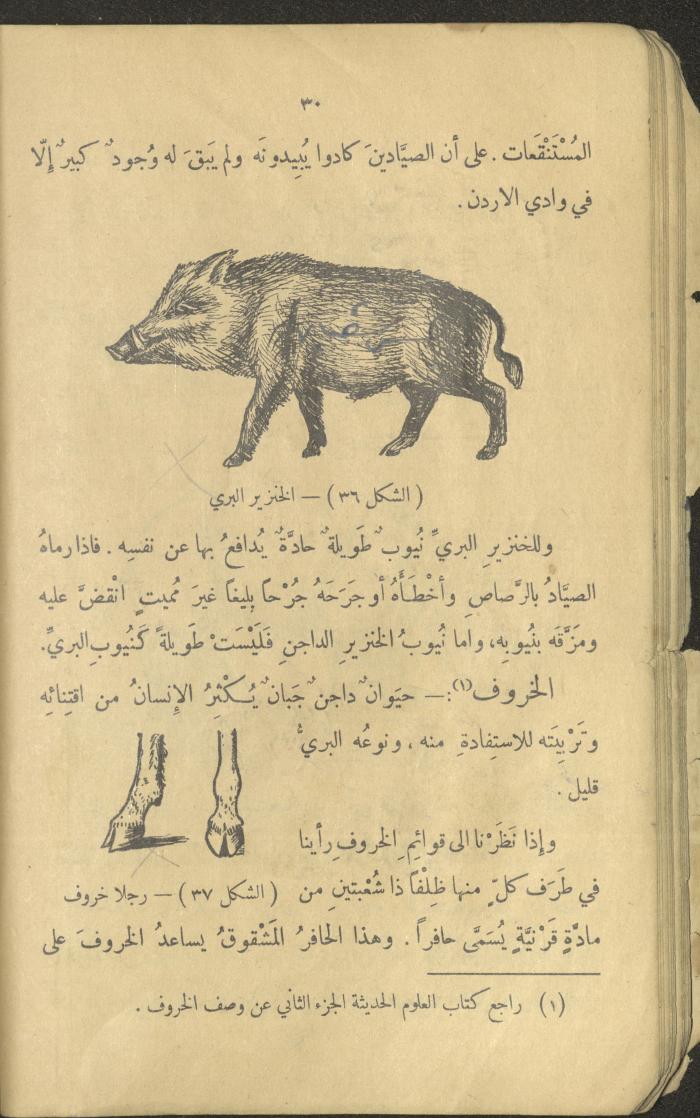 ٣٠
المُسْتَنْقَعات . على أن الصيَّادينَ كادوا يُبِيدونَه ولم يَبقَ له وُجودٌ كبيرٌ إِلّا
في وادي الاردن .
( الشكل ٣٦ ) – الخنزير البري
وللخنزيرِ البريِّ نُيوبٌ طَويلةٌ حادَّةٌ يُدافعُ بها عن نفسِه . فاذا رماهُ
الصيَّادُ بالرَّصاصِ وأَخْطَأَهُ أو جَرَحَهُ جُرْحاً بليغاً غيرَ مُميتٍ انْقضَّ عليه
ومزَّقَه بنُيوبِه، واما نُيوبُ الخنزيرِ الداجنِ فَلَيْسَتْ طَويلةً كَنُيوبِ البريِّ.
الخروف(١):– حيَوانٌ داجنٌ جَبانٌ يُكْثِرُ الإِنسانُ من اقتِنائِه
وتَرْبِيَتَه للاستِفادةِ منه ، ونوعُه البريُّ
قليل .
وإذا نَظَرْنا الى قوائِمِ الخروفِ رأينا
في طَرَف كلّ منها ظِلْفاً ذا شُعْبتينِ من
( الشكل ٣٧ ) – رجلا خروف
مادَّةٍ قَرْنيَّةٍ يُسَمَّى حافراً . وهذا الحافرُ المَشْقوقُ يساعدُ الخروفَ على
(١) راجع كتاب العلوم الحديثة الجزء الثاني عن وصف الخروف .